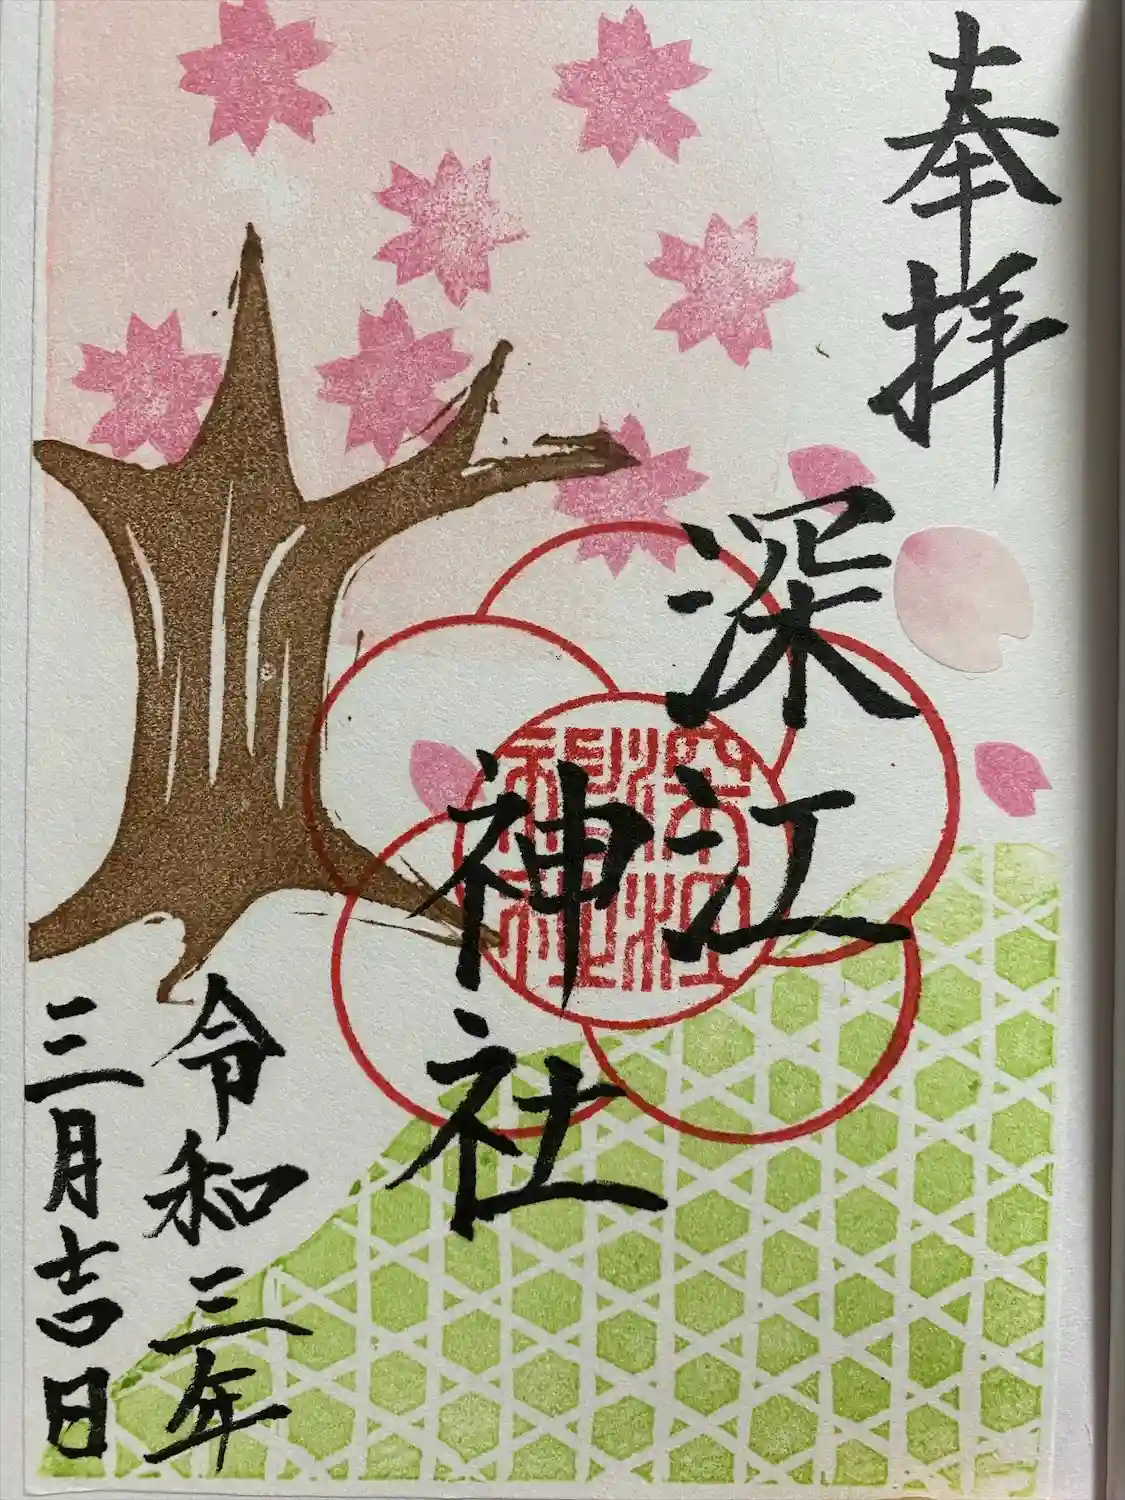 奉拝
深江
神社
深江
神社
令和三年
三月吉日